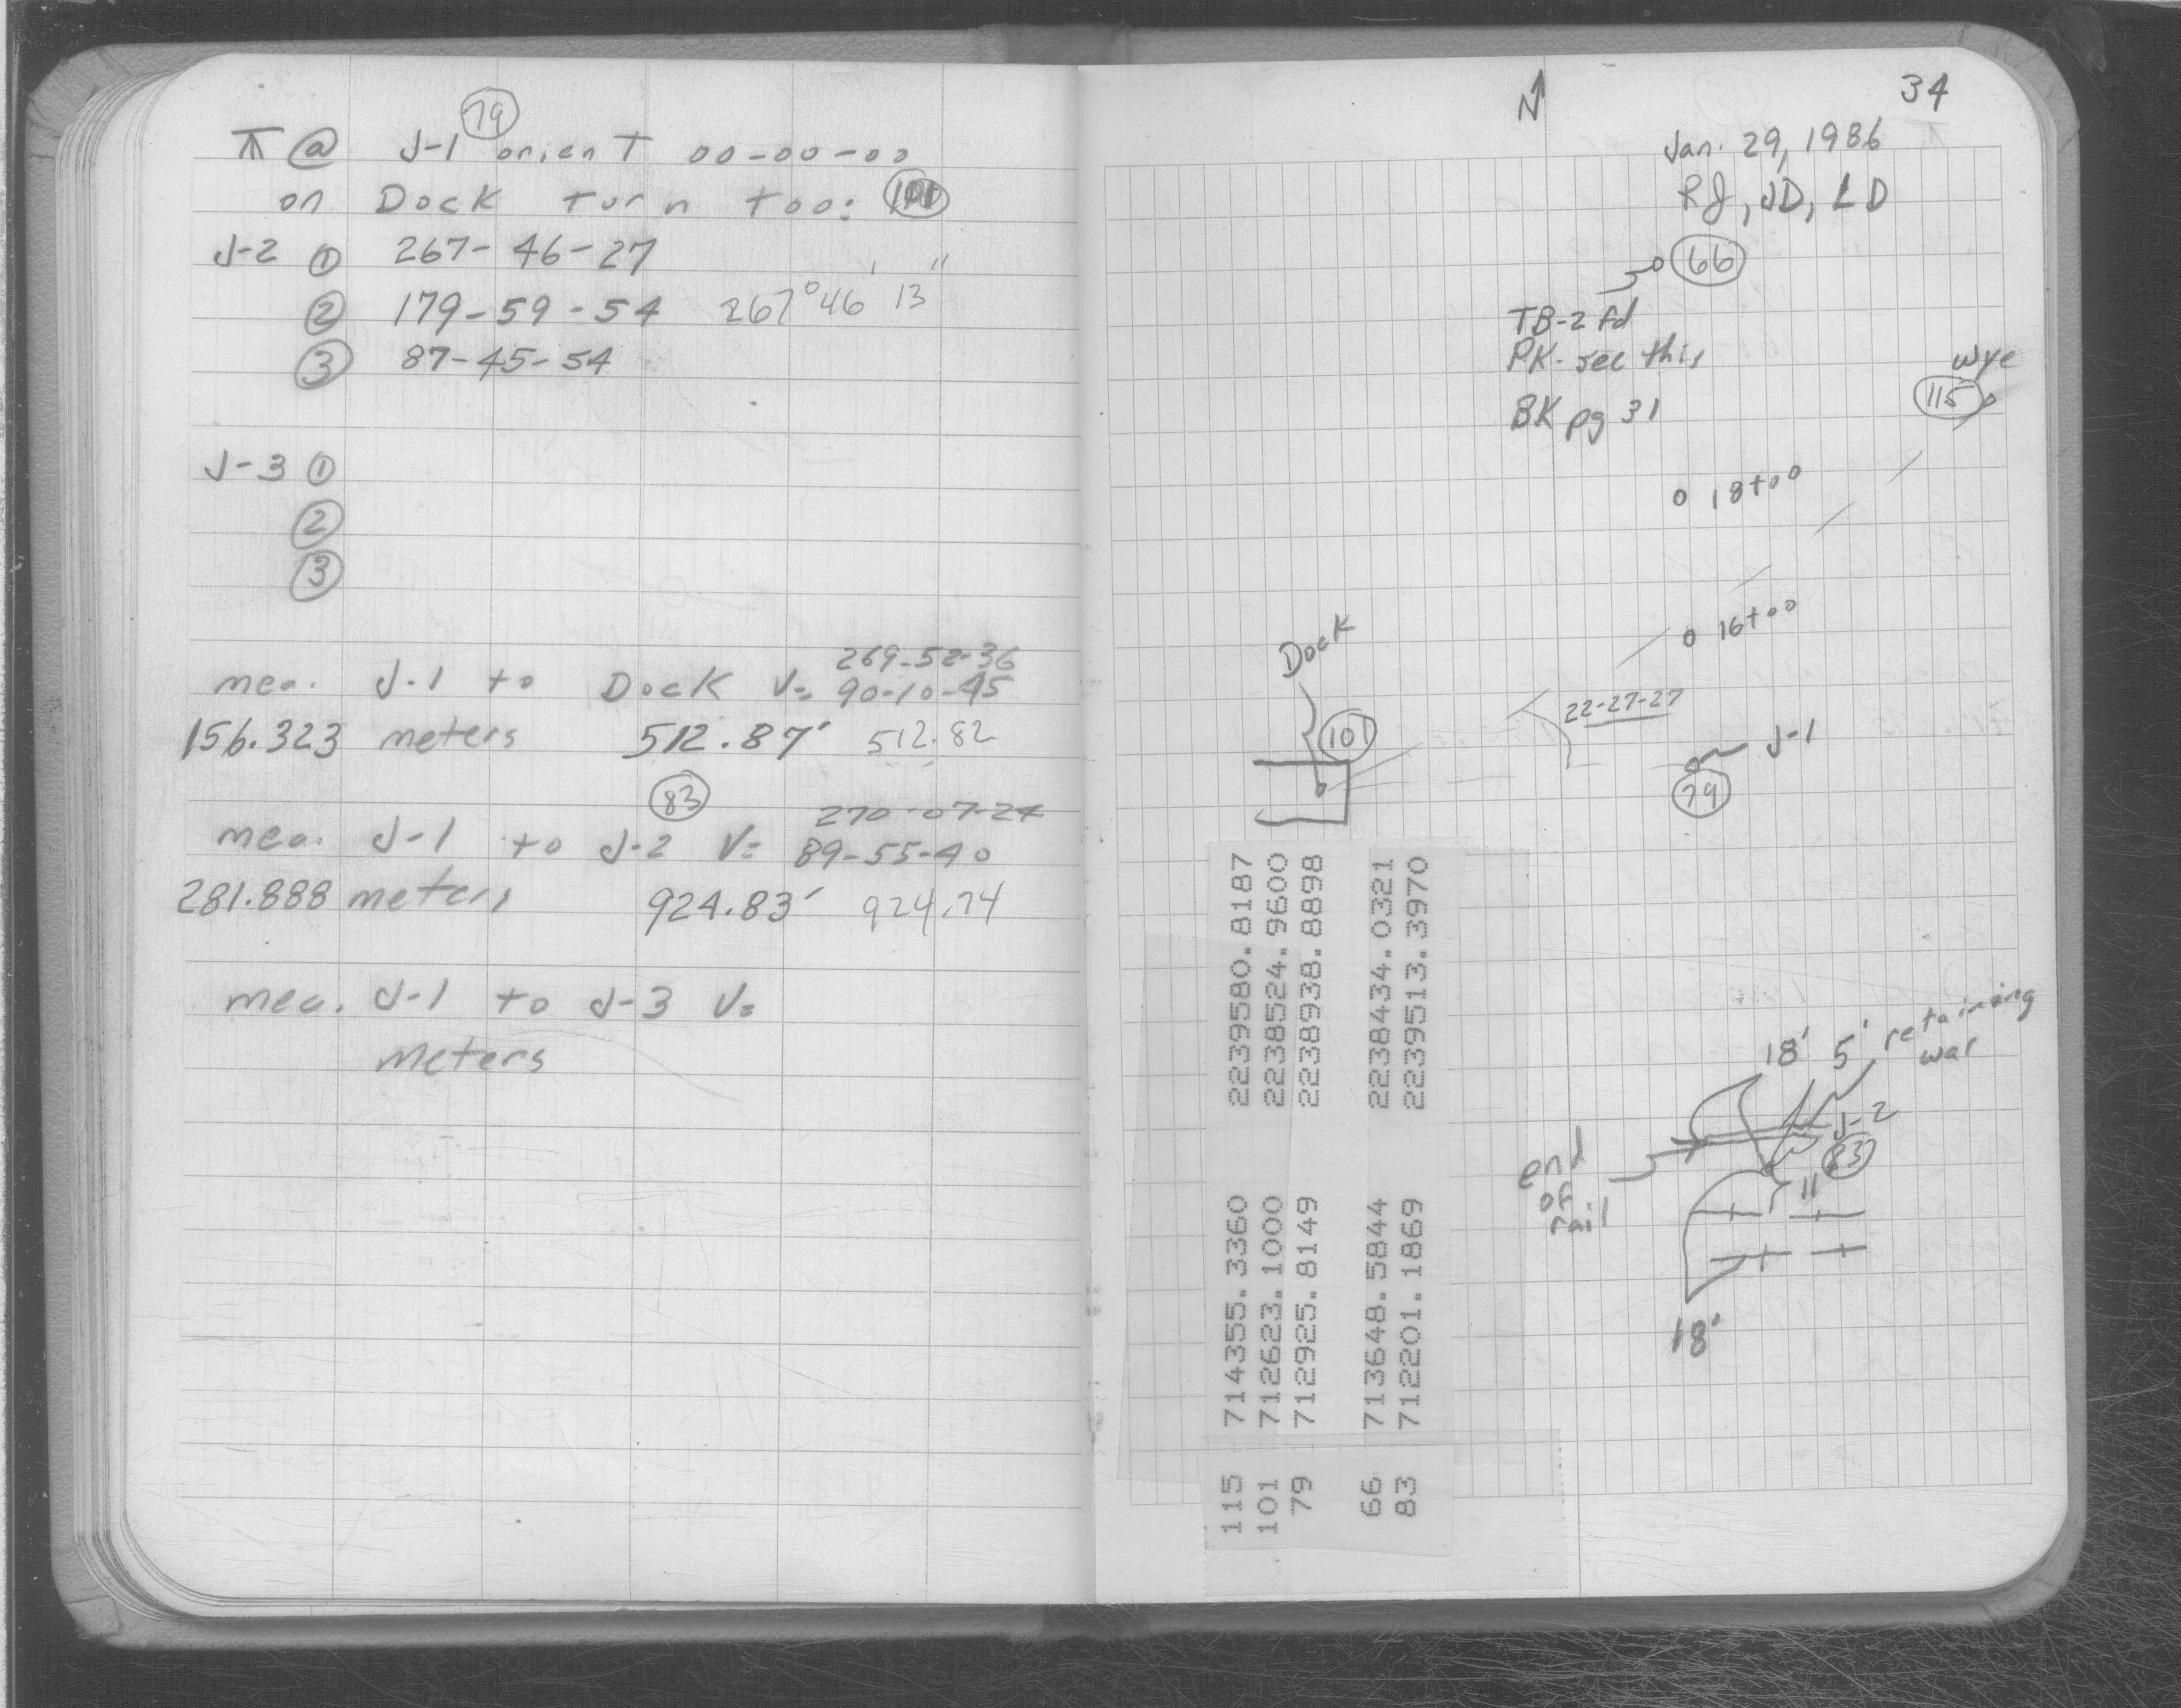 79
⊼ @ J-1 orienT 00-00-00
on Dock turn too: 101
J-2 ① 267-46-27
② 179-59-54 267° 46' 13"
③ 87-45-54
J-3 ①
②
③
269-52-36
mea. J-1 to Dock V= 90-10-45
156.323 meters 512.87' 512.82
83
270-07-24
mea. J-1 to J-2 V= 89-55-40
281.888 meters 924.83' 924.74
mea. J-1 to J-3 V=
meters
N
34
Jan. 29, 1986
RJ, JD, LD
66
TB-2 fd
PK- see this
BK pg 31
wye
115
18+00
16+00
Dock
22-27-27
101
J-1
79
18' 5' retaining
war
J-2
83
end
of
rail
11
18'
115 714355.3360 2239580.8187
101 712623.1000 2238524.9600
79 712925.8149 2238938.8898
66 713648.5844 2238434.0321
83 712201.1869 2239513.3970